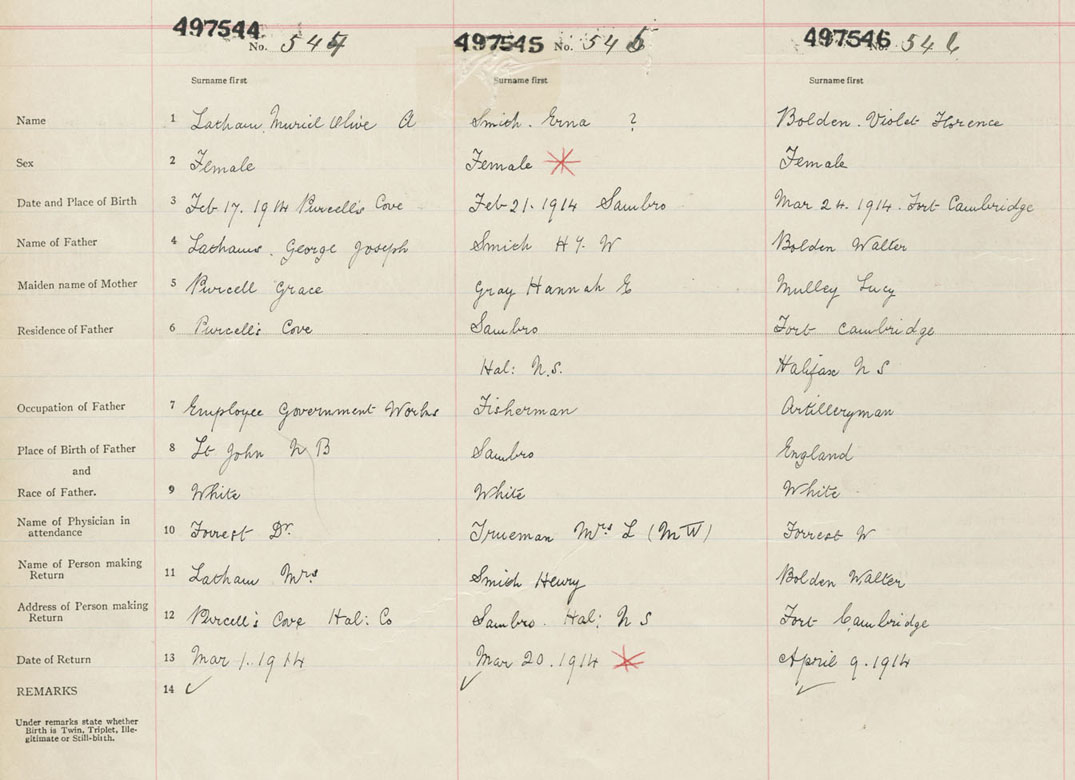 497544 No. 544
497545 No. 545
497546 No. 546
Surname first Surname first Surname first
Name 1 Latham, Muriel Olive A Smith. Erna ? Bolden. Violet Florence
Sex 2 Female Female Female
Date and Place of Birth 3 Feb 17. 1914 Purcell's Cove Feb 21. 1914 Sambro Mar 24. 1914. Fort Cambridge
Name of Father 4 Lathams. George Joseph Smith Hy. W Bolden Walter
Maiden name of Mother 5 Purcell Grace Gray Hannah E Mulley Lucy
Residence of Father 6 Purcell's Cove Sambro Fort Cambridge
Hal: N.S. Halifax N S
Occupation of Father 7 Employee Government Works Fisherman Artilleryman
Place of Birth of Father 8 St John N B Sambro England
and
Race of Father. 9 White White White
Name of Physician in
attendance 10 Forrest Dr. Trueman Mrs L (M W) Forrest W
Name of Person making
Return 11 Latham Mrs Smith Henry Bolden Walter
Address of Person making
Return 12 Purcell's Cove Hal: Co Sambro. Hal: N S Fort Cambridge
Date of Return 13 Mar 1. 1914 Mar 20. 1914 April 9. 1914
REMARKS 14
Under remarks state whether
Birth is Twin, Triplet, Ille-
gitimate or Still-birth.